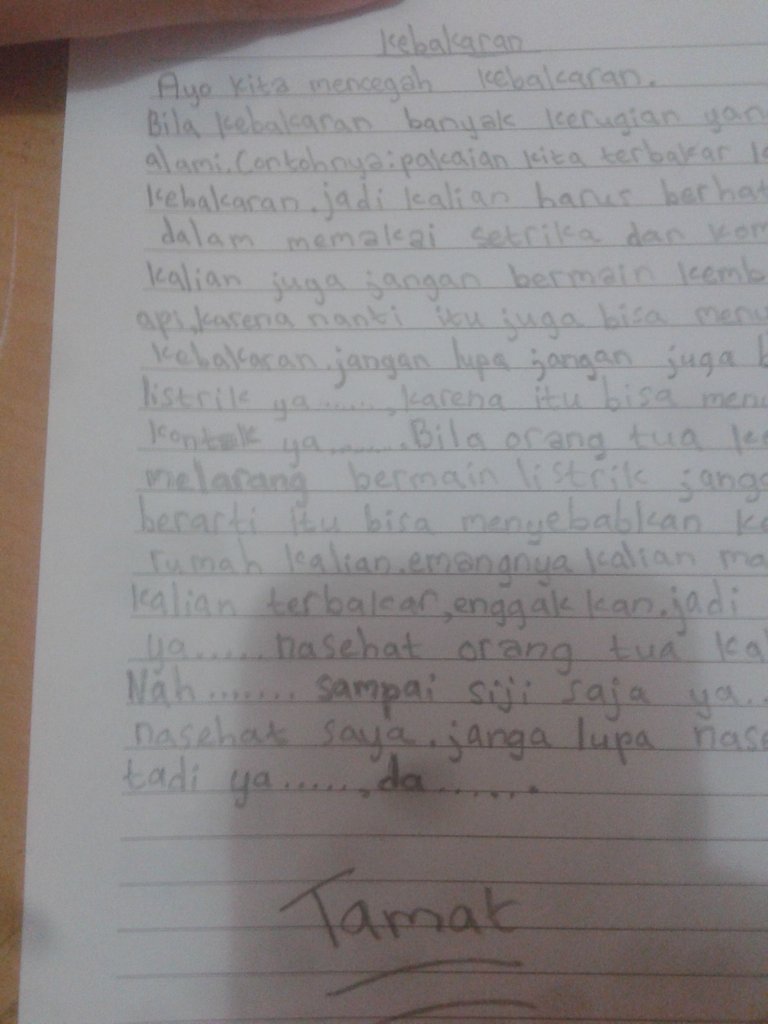 Kebakaran
Ayo kita mencegah kebakaran.
Bila kebakaran banyak kerugian
alami. Contohnya: pakaian kita terbakar
kebakaran. jadi kalian harus
dalam memakai setrika dan
kalian juga jangan bermain
api, karena nanti itu juga bisa
kebakaran. jangan lupa jangan juga
listrik ya......, karena itu bisa
kontak ya.......Bila orang tua
melarang bermain listrik
berarti itu bisa menyebabkan
rumah kalian. emangnya kalian
kalian terbakar, enggak kan. jadi
ya...... nasehat orang tua
Nah....... sampai siji saja ya...
nasehat saya. janga lupa
tadi ya......, da.......
Tamat